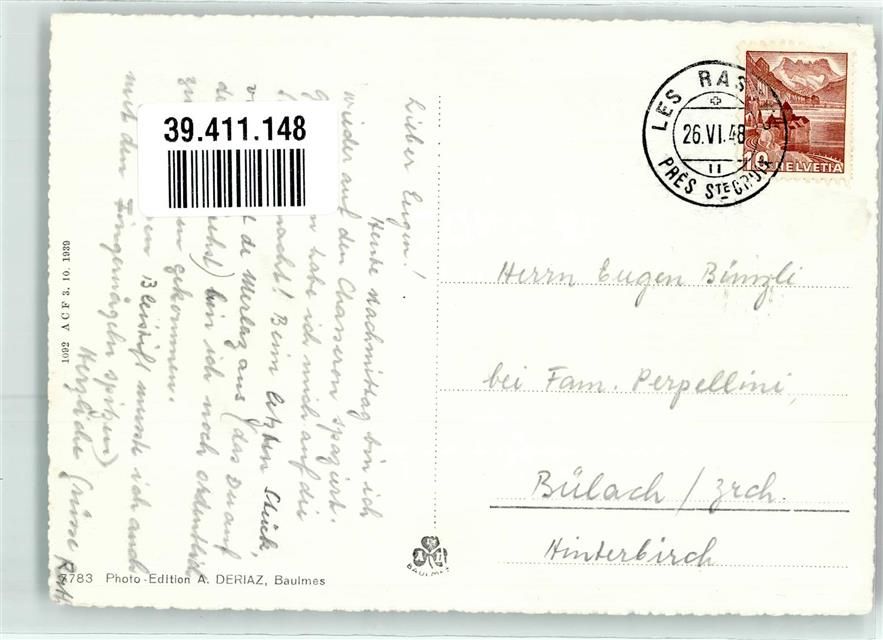 Lieber Eugen!
Heute Nachmittag bin ich
wieder auf den Chasseron spaziert.
habe ich mich auf die
macht! Beim letzten Stück,
de Merlaz aus (das Du auf
siehst) bin ich noch ordentlich
gekommen.
Bleistift musste ich auch
mit den Fingernägeln spitzen)
Herzliche Grüsse Ruth
39.411.148
1092 A C F 3. 10. 1939
7783 Photo-Edition A. DERIAZ, Baulmes
BAULMES
LES RAS
26.VI.48
11
PRÈS STE CROIX
10 HELVETIA
Herrn Eugen Bünzli
bei Fam. Perpellini,
Bülach / Zrch.
Hinterbirch